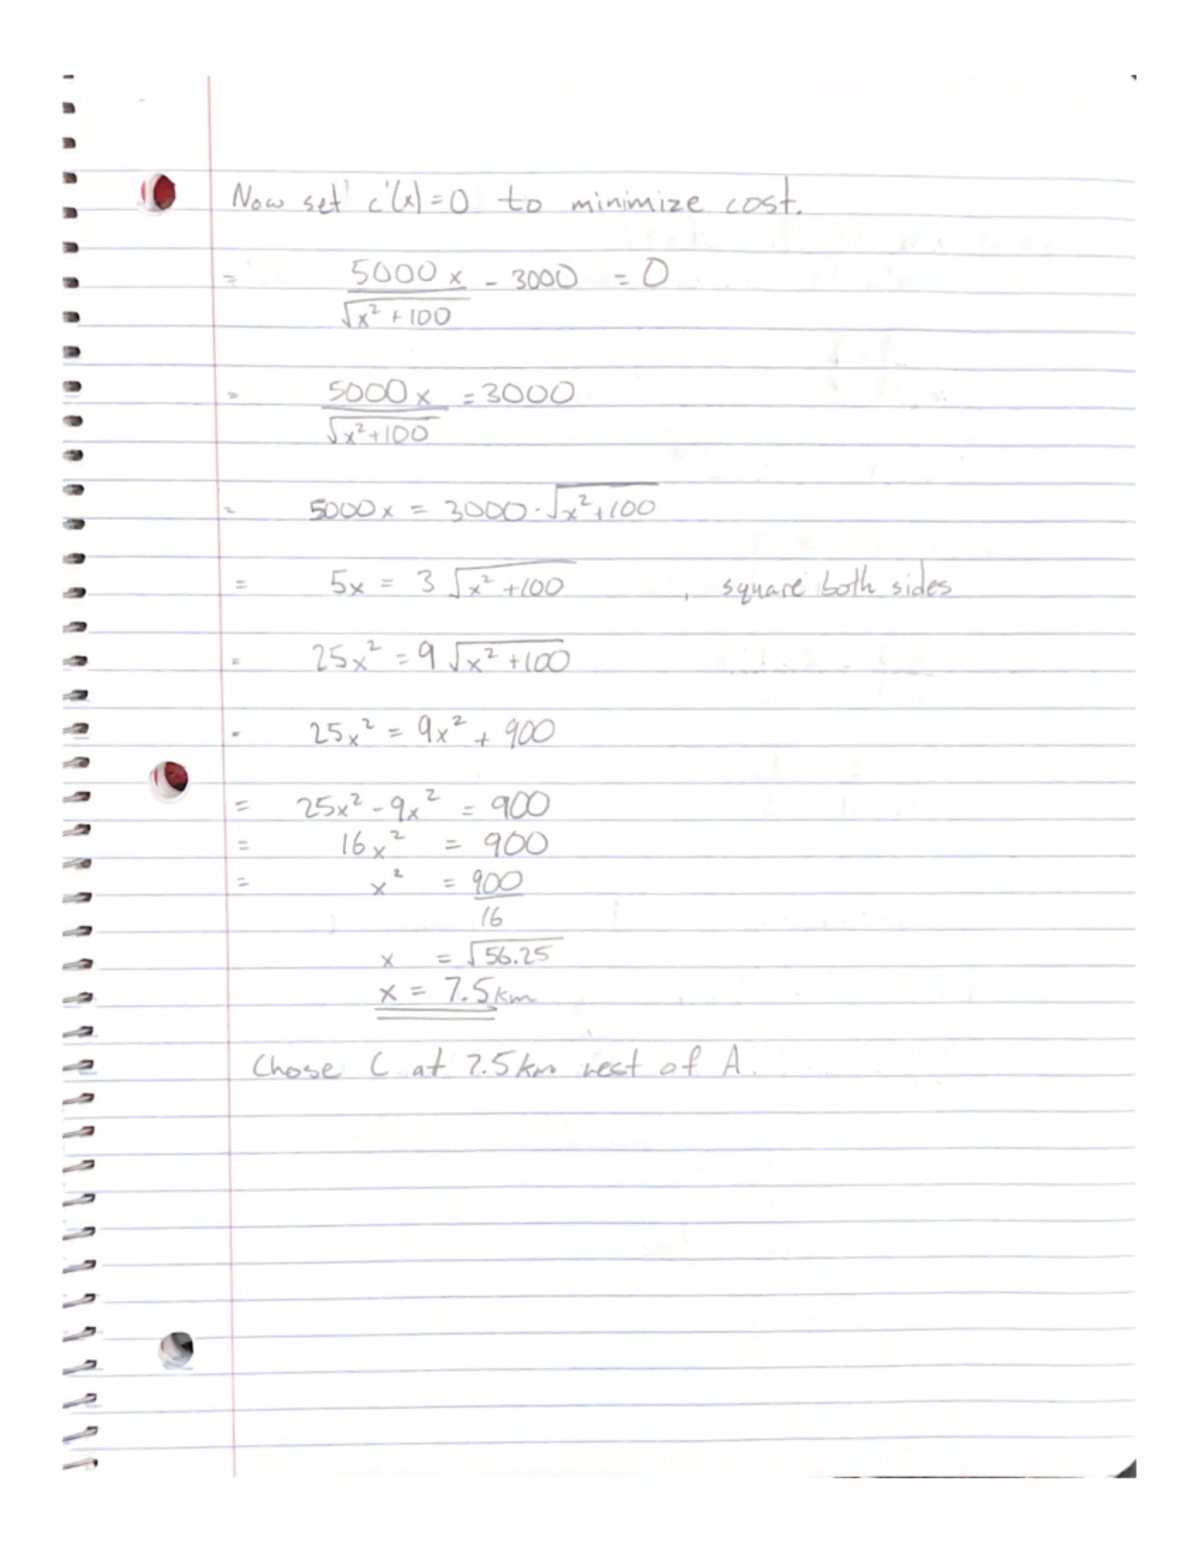 Now set c'(x)=0 to minimize cost.
= 5000x / √(x²+100) - 3000 = 0
= 5000x / √(x²+100) = 3000
= 5000x = 3000·√(x²+100)
= 5x = 3√(x²+100) , square both sides
= 25x² = 9√(x²+100)
= 25x² = 9x² + 900
= 25x² - 9x² = 900
= 16x² = 900
= x² = 900/16
x = √56.25
x = 7.5km
Chose C at 7.5km west of A.